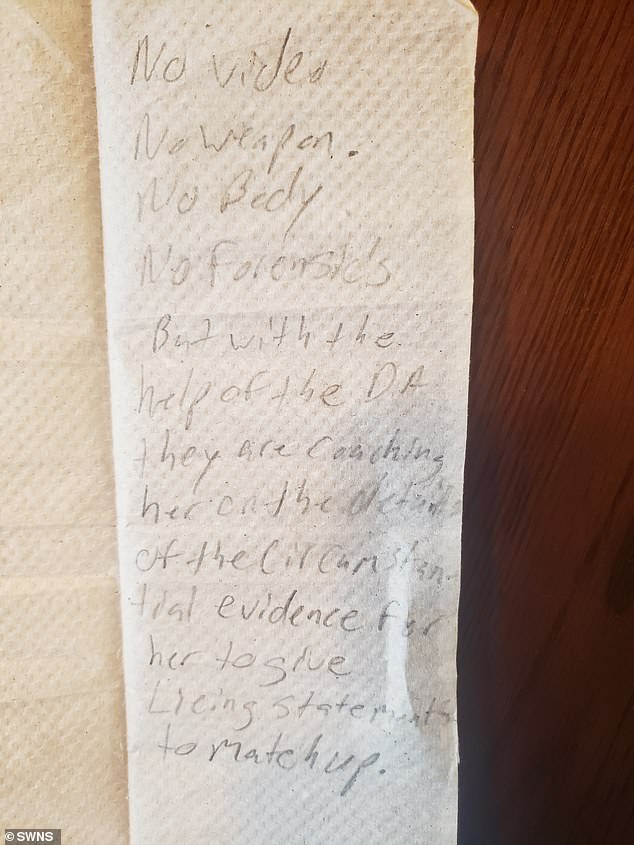 No video
No weapon.
No Body
No Forensics
But with the
help of the DA
they are coaching
her on the details
of the Circumstan-
tial evidence for
her to give
Lieing statements
to match up.
© SWNS